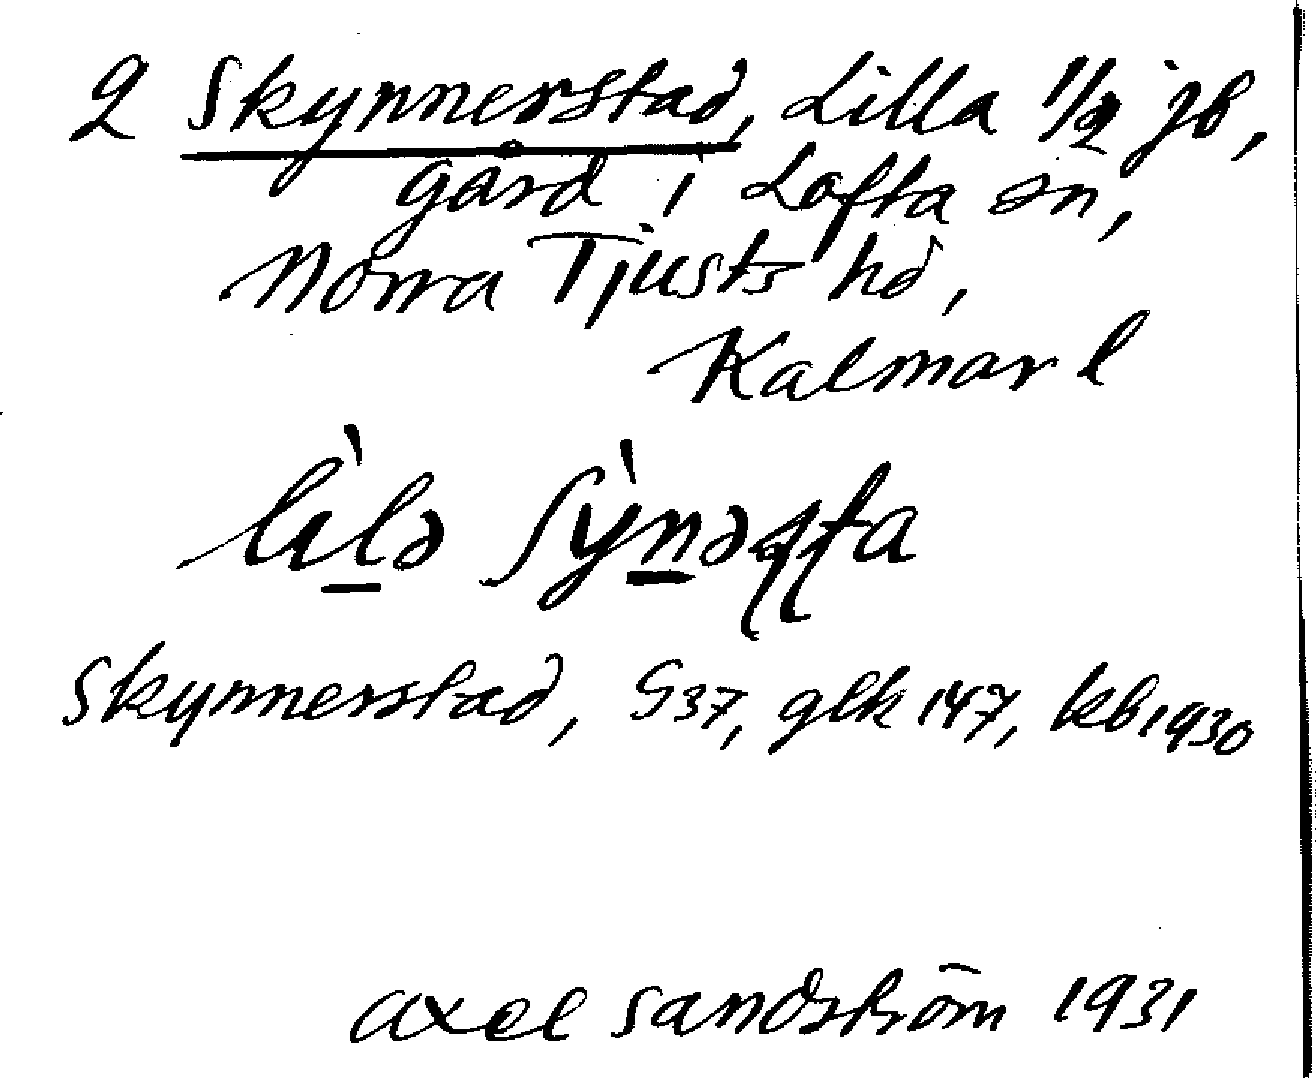 2 Skynnerstad, Lilla 1/2 jb,
gård i Lofta sn,
Norra Tjusts hd,
Kalmar l
Skynnerstad, G37, glk 147, kb 1930
Axel Sandström 1931